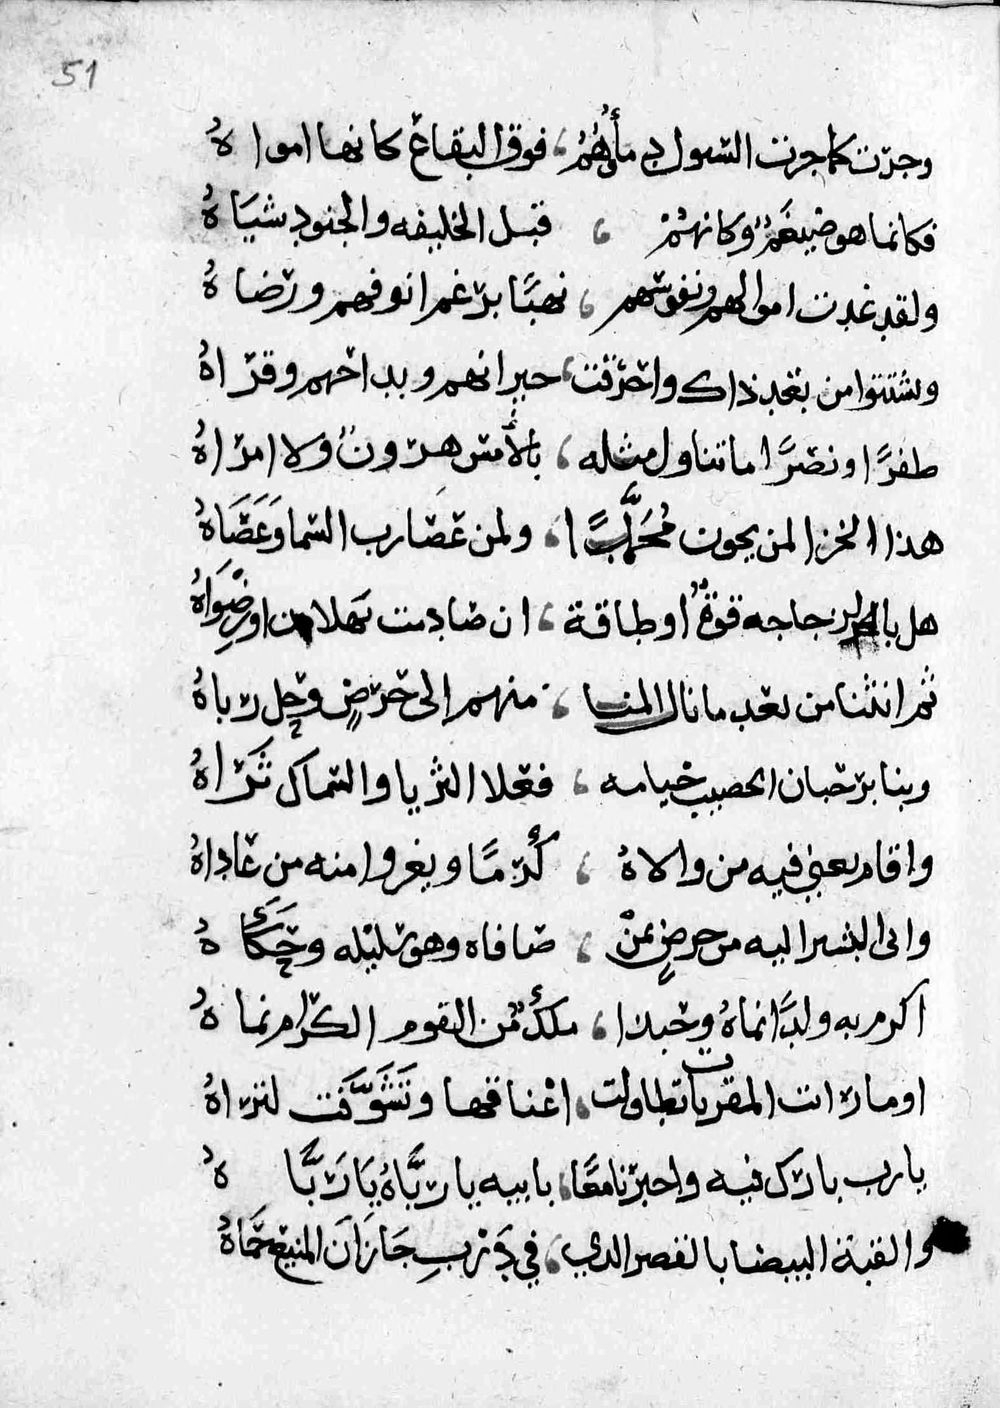 51
وجرت كما جرت السول دمأهُمُ ، فوق البقاع كانها امواهُ
فكانما هو ضيغمٌ وكانهم ، قبل الخليفه والجنود شياهُ
ولقد غدت اموالهم ونفوسهم ، نهبًا برغم انوفهم ورضاهُ
وتشتتوا من بعد ذاك واحرقت ، حيرانهم وبد احهم وقراهُ
طفرًا ونصرًا ما تناول مثله ، بالأمس هرون ولا امراهُ
هذا الخزا لمن يحون مُحَمَّدًا ، ولمن عصا رب السما وعَصَاهُ
هل بال زجاجه قوةٌ او طاقة ، ان صادمت اورضواهُ
ثم انثنا من بعد ما نال المنا ، منهم إلى حرضٍ وحل رباهُ
وبنا برحبان الحصيب خيامه ، فعلا الثريا والسماك ثَرَاهُ
واقام يعني فيه من والاهُ ، كرمًا ويغروا منه من عاداهُ
واتى البشير اليه من حرضٍ بمن ، صافاه وهو سليله وحكاهُ
اكرم به ولدًا نماهُ وحبذا ، ملكٌ من القوم الكرام نماهُ
او ماره انت المقربات تطاولت ، اعناقها وتشوَّقت لتراهُ
يا رب بارك فيه واحبرنا معًا ، بابيه يا ربَّاهُ يَا رَبَّاهُ
والقبة البيضا بالقصر الذي ، في دَرْبِ جَازَانَ المنيع حَمَاهُ